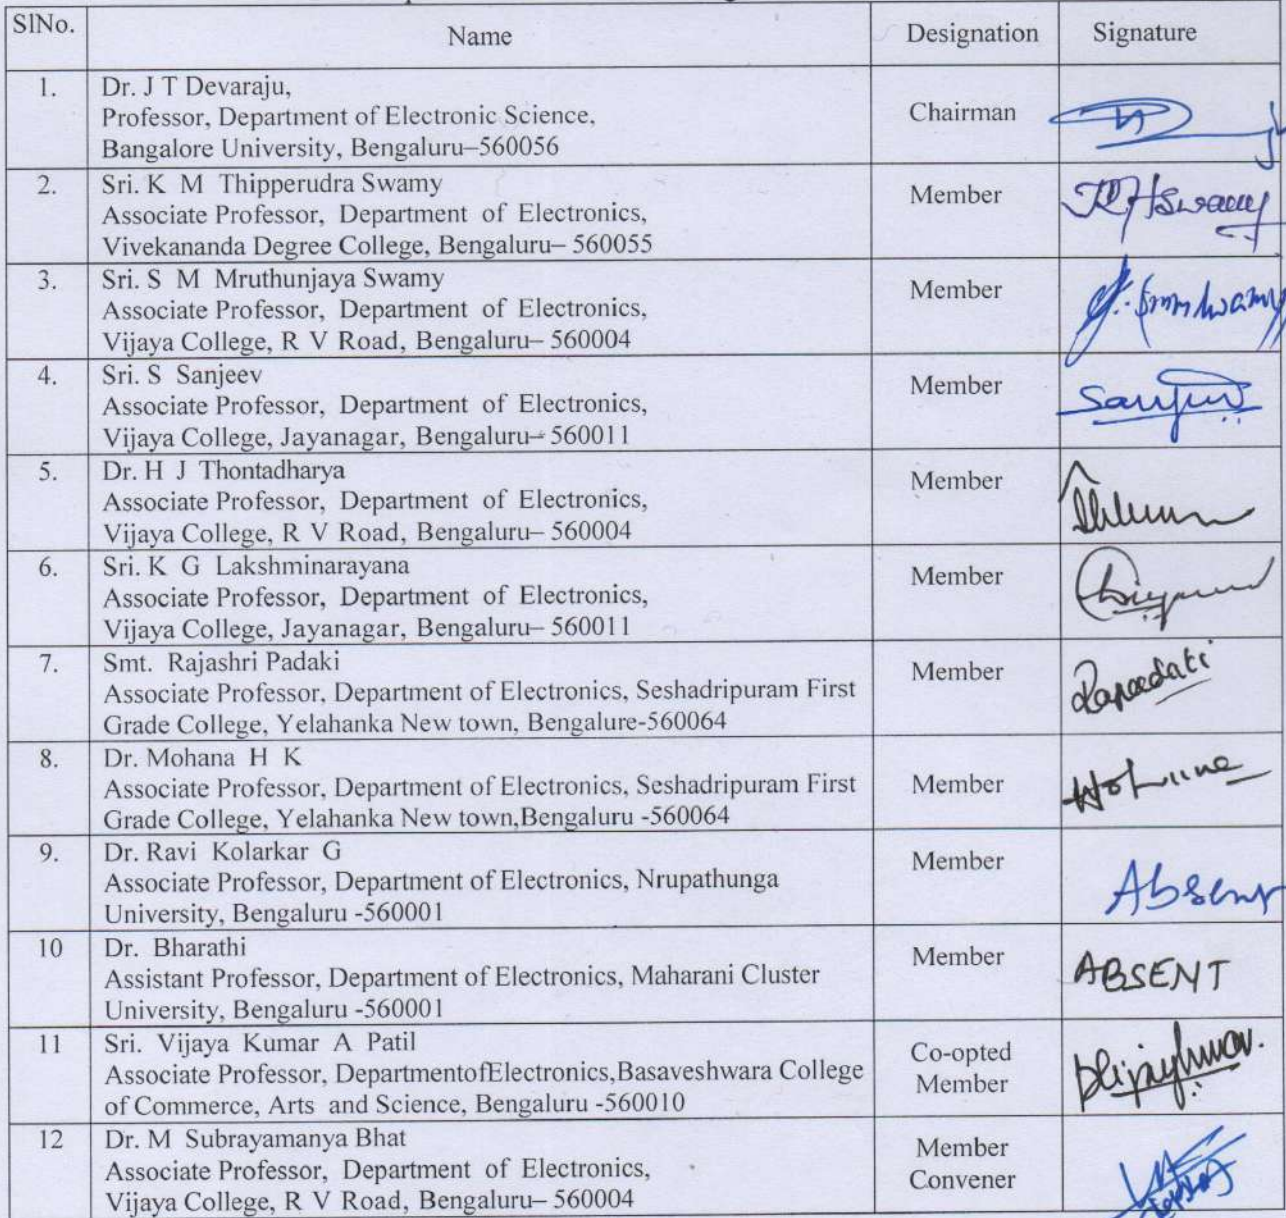 SlNo.
Name
Designation
Signature
1.
Dr. J T Devaraju,
Professor, Department of Electronic Science,
Bangalore University, Bengaluru–560056
Chairman
2.
Sri. K M Thipperudra Swamy
Associate Professor, Department of Electronics,
Vivekananda Degree College, Bengaluru– 560055
Member
3.
Sri. S M Mruthunjaya Swamy
Associate Professor, Department of Electronics,
Vijaya College, R V Road, Bengaluru– 560004
Member
4.
Sri. S Sanjeev
Associate Professor, Department of Electronics,
Vijaya College, Jayanagar, Bengaluru– 560011
Member
5.
Dr. H J Thontadharya
Associate Professor, Department of Electronics,
Vijaya College, R V Road, Bengaluru– 560004
Member
6.
Sri. K G Lakshminarayana
Associate Professor, Department of Electronics,
Vijaya College, Jayanagar, Bengaluru– 560011
Member
7.
Smt. Rajashri Padaki
Associate Professor, Department of Electronics, Seshadripuram First
Grade College, Yelahanka New town, Bengalure-560064
Member
8.
Dr. Mohana H K
Associate Professor, Department of Electronics, Seshadripuram First
Grade College, Yelahanka New town,Bengaluru -560064
Member
9.
Dr. Ravi Kolarkar G
Associate Professor, Department of Electronics, Nrupathunga
University, Bengaluru -560001
Member
Absent
10
Dr. Bharathi
Assistant Professor, Department of Electronics, Maharani Cluster
University, Bengaluru -560001
Member
ABSENT
11
Sri. Vijaya Kumar A Patil
Associate Professor, DepartmentofElectronics,Basaveshwara College
of Commerce, Arts and Science, Bengaluru -560010
Co-opted
Member
12
Dr. M Subrayamanya Bhat
Associate Professor, Department of Electronics,
Vijaya College, R V Road, Bengaluru– 560004
Member
Convener